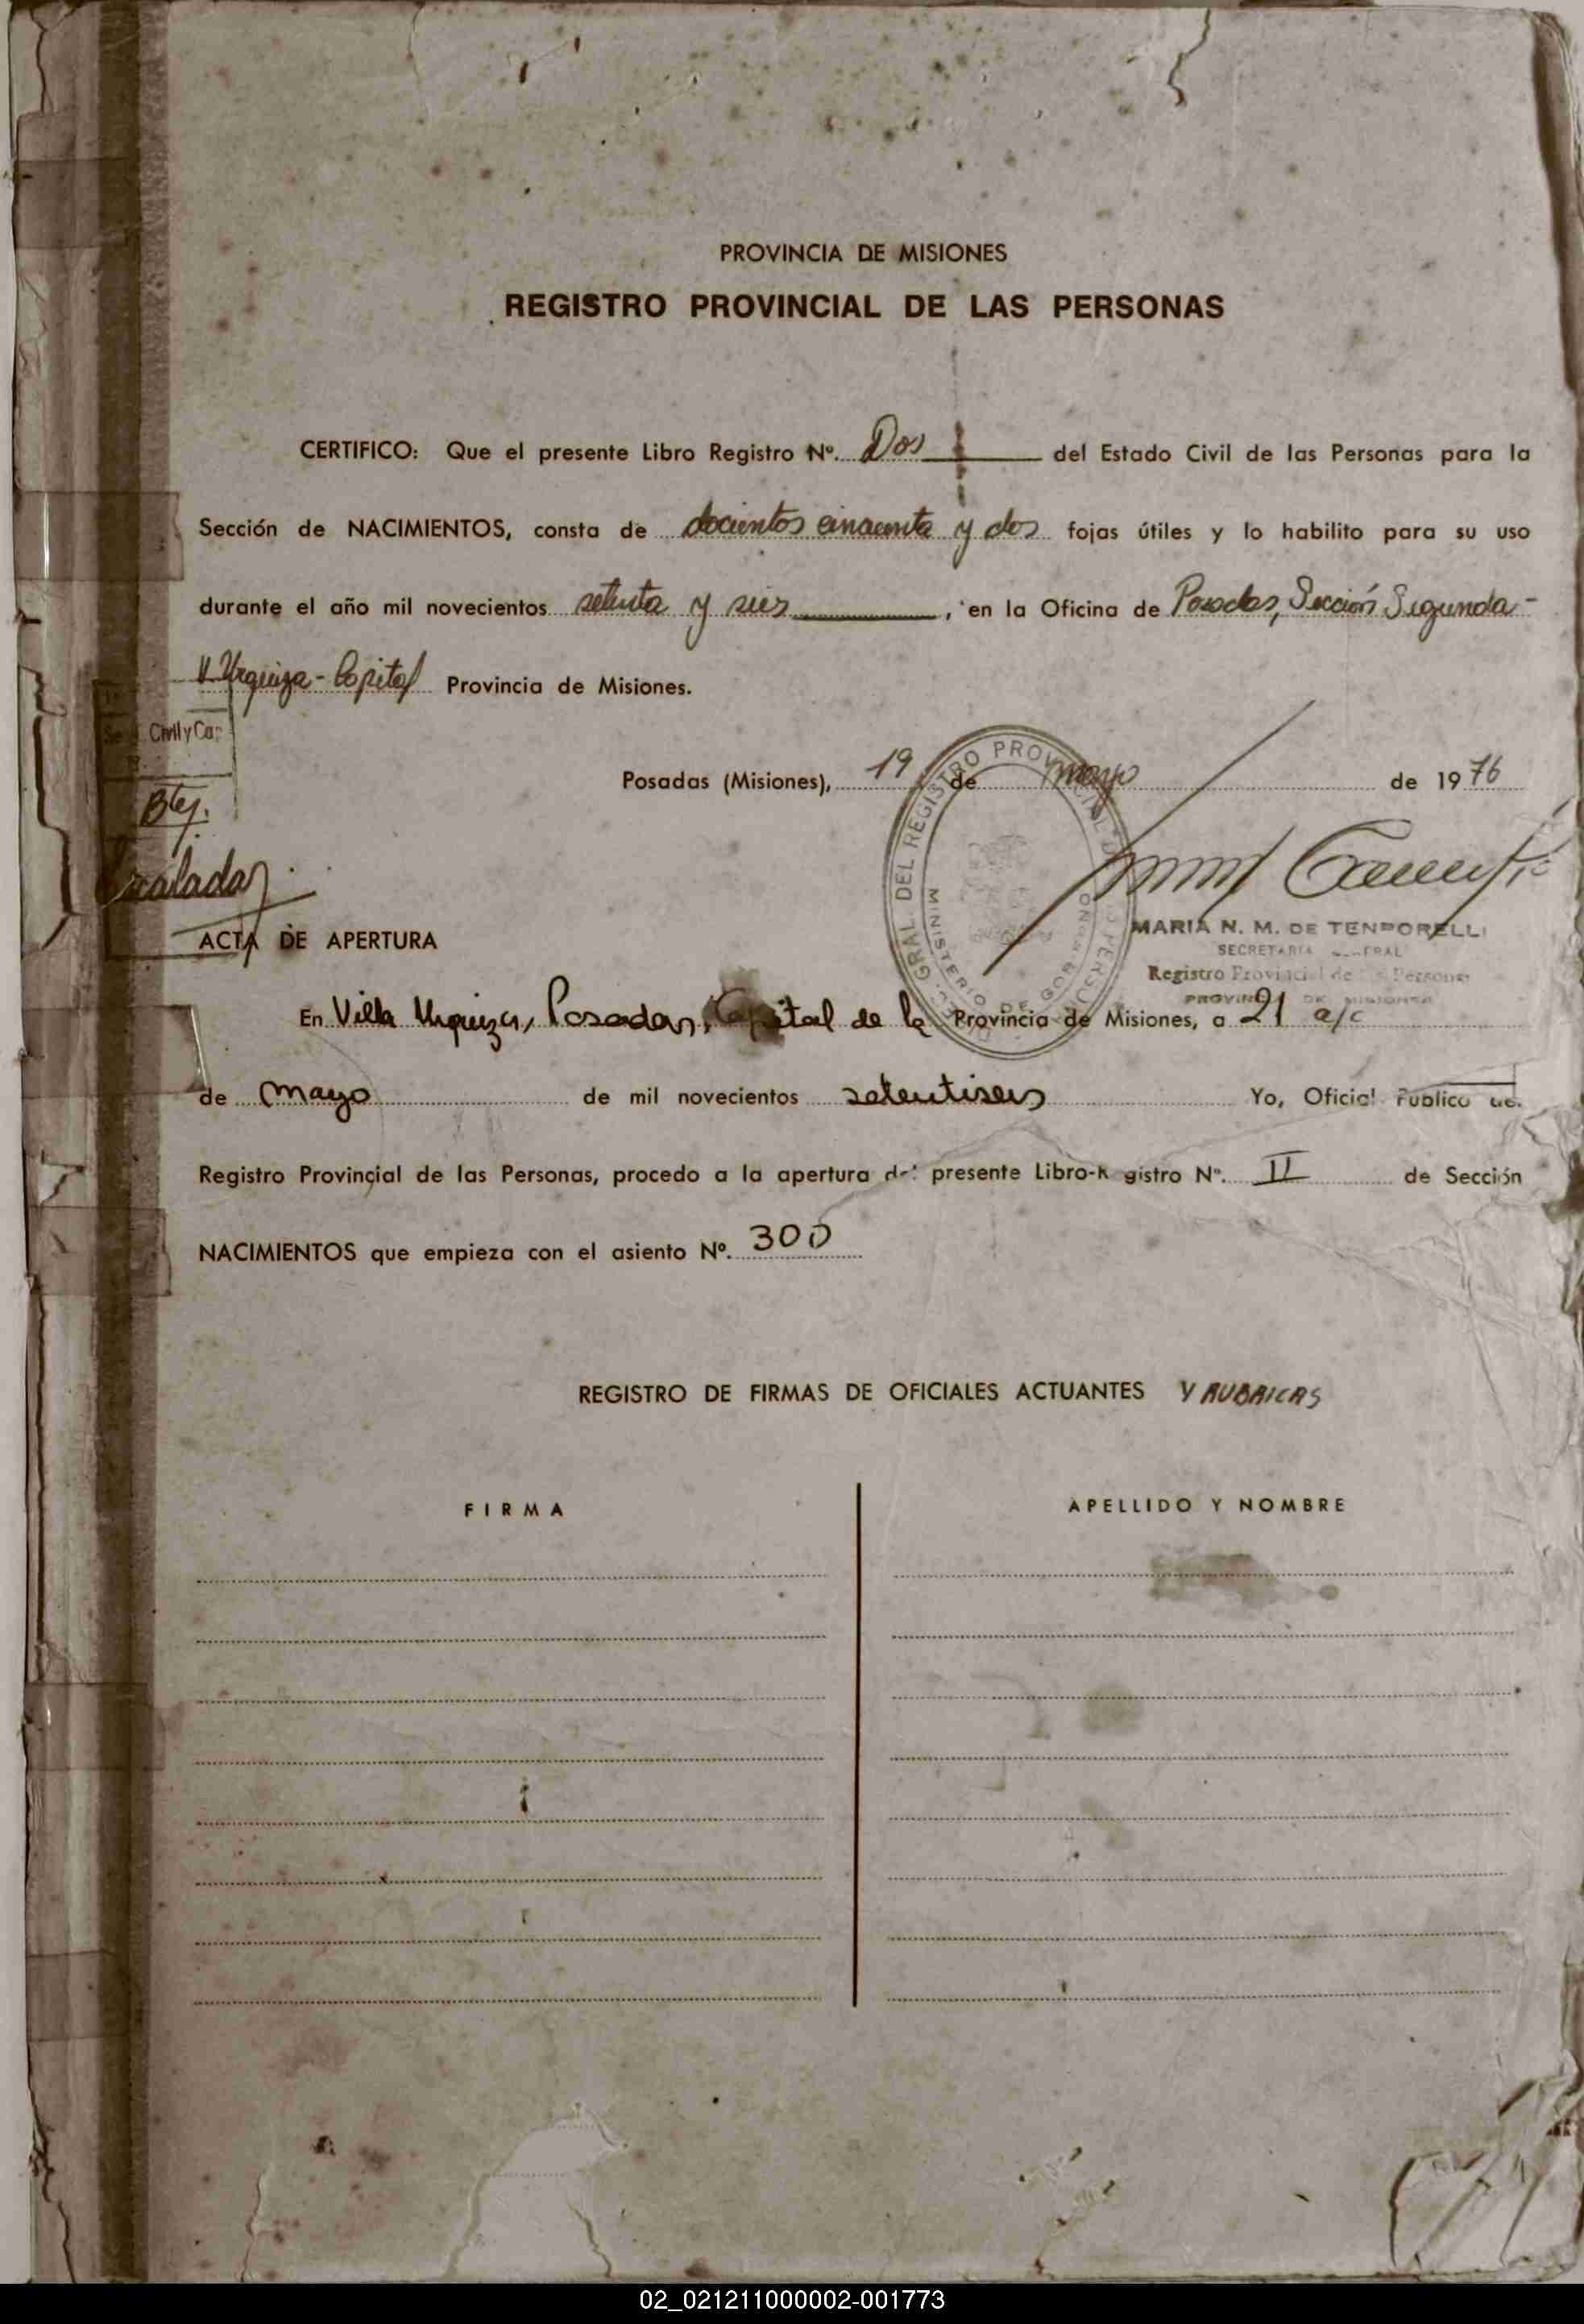 PROVINCIA DE MISIONES
REGISTRO PROVINCIAL DE LAS PERSONAS
CERTIFICO: Que el presente Libro Registro Nº. Dos del Estado Civil de las Personas para la
Sección de NACIMIENTOS, consta de docientos cincuenta y dos fojas útiles y lo habilito para su uso
durante el año mil novecientos setenta y seis, en la Oficina de Posadas, Sección Segunda-
V. Urquiza-Capital Provincia de Misiones.
Civil y Cap
Posadas (Misiones), 19 de mayo de 1976
Btej.
MARIA N. M. DE TEMPORELLI
SECRETARIA GENERAL
Registro Provincial de las Personas
PROVINCIA DE MISIONES
GRAL. DEL REGISTRO PROVINCIAL
MINISTERIO DE
ACTA DE APERTURA
En Villa Urquiza, Posadas, Capital de la Provincia de Misiones, a 21 a/c
de mayo de mil novecientos setentiseis Yo, Oficial Publico de.
Registro Provincial de las Personas, procedo a la apertura del presente Libro-R gistro Nº. II de Sección
NACIMIENTOS que empieza con el asiento Nº. 300
REGISTRO DE FIRMAS DE OFICIALES ACTUANTES Y RUBRICAS
FIRMA
APELLIDO Y NOMBRE
02_021211000002-001773